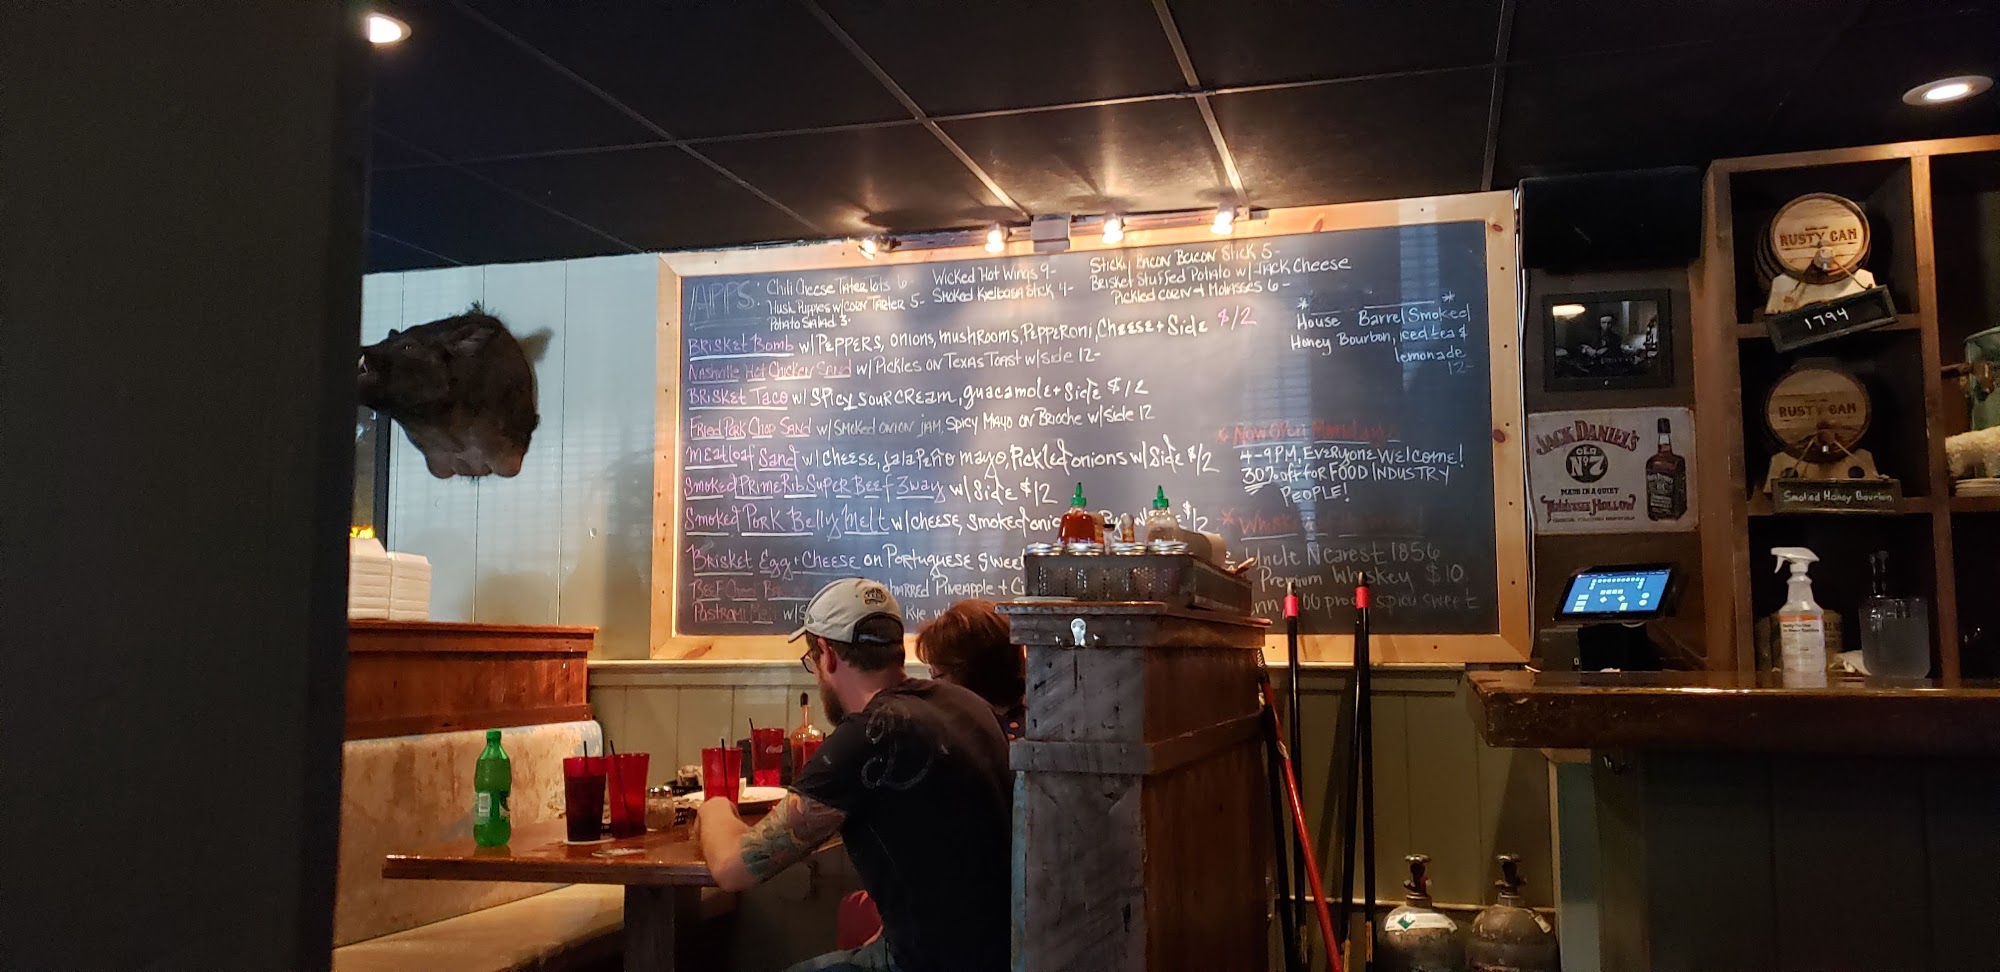 APPS:
Chili Cheese Tater Tots 6-
Hush Puppies w/corn Tarter 5-
Potato Salad 3-
Wicked Hot Wings 9-
Smoked Kielbasa Stick 4-
Sticky Bacon Bacon Stick 5-
Brisket Stuffed Potato w/ Jack Cheese
Pickled corn + Molasses 6-
Brisket Bomb w/ Peppers, onions, mushrooms, Pepperoni, Cheese + Side $12
Nashville Hot Chicken Sand w/ Pickles on Texas Toast w/side 12-
Brisket Taco w/ Spicy sour cream, guacamole + Side $12
Fried Pork Chop Sand w/ Smoked onion jam, Spicy Mayo on Brioche w/side 12
Meatloaf Sand w/ cheese, jalapeño mayo, Pickled onions w/ Side $12
Smoked Prime Rib Super Beef 3way w/ Side $12
Smoked Pork Belly Melt w/ cheese, smoked
Brisket Egg + Cheese on Portuguese Sweet
Pineapple +
Pastrami
House Barrel Smoked
Honey Bourbon, iced tea &
lemonade
12-
Now Open Mondays
4-9PM, Everyone Welcome!
30% off for FOOD INDUSTRY
PEOPLE!
Uncle Nearest 1856
Premium Whiskey $10
100 proof spicy sweet
JACK DANIEL'S
OLD
No 7
MADE IN A QUIET
Tennessee HOLLOW
RUSTY CAN
1794
RUSTY CAN
Smoked Honey Bourbon